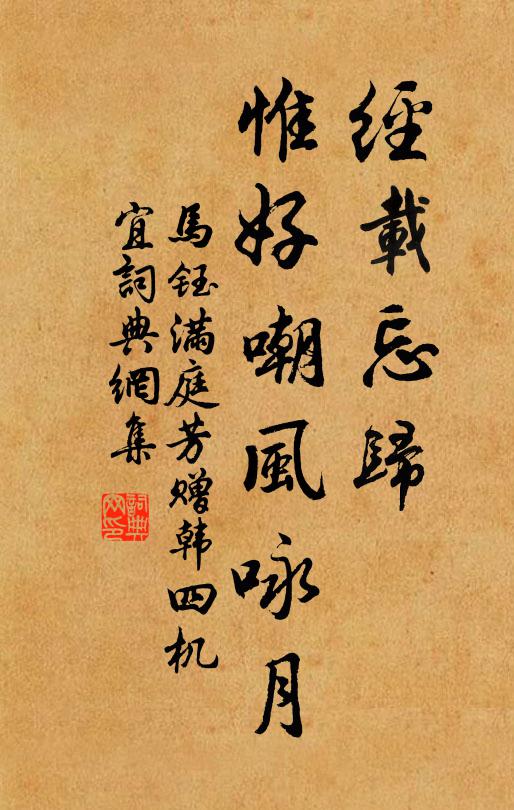 經載忘歸
惟好嘲風咏月
馬鈺满庭芳赠韩四机
宜詞典網集
詞典網印